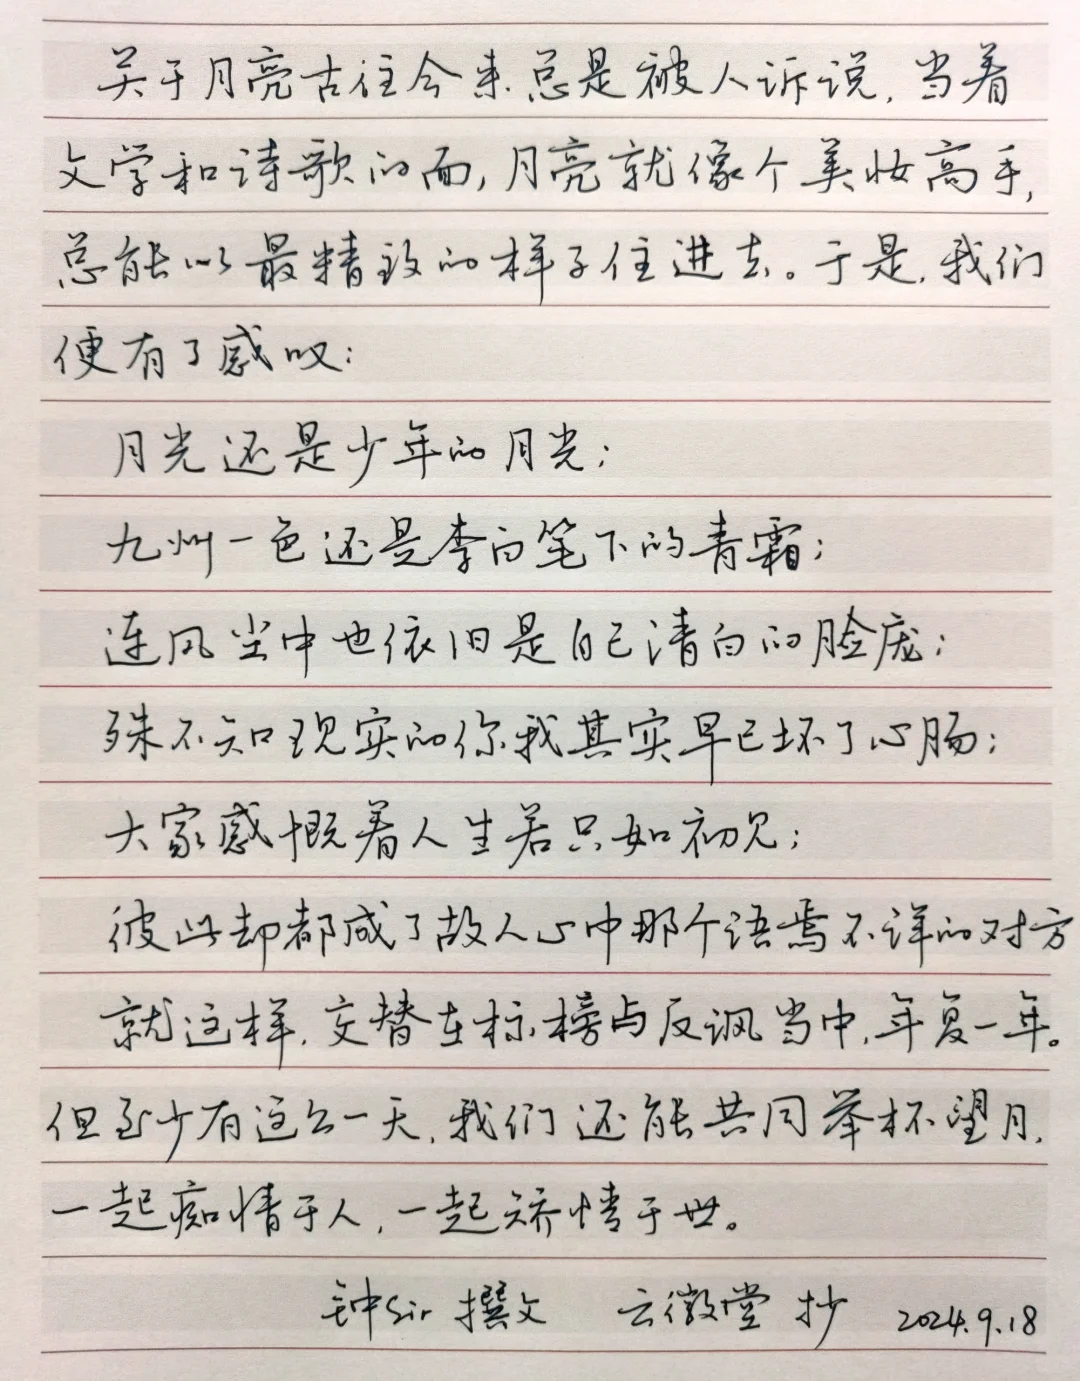 关于月亮古往今来总是被人诉说,当着
文学和诗歌的面,月亮就像个美妆高手,
总能以最精致的样子住进去。于是,我们
便有了感叹:
月光还是少年的月光;
九州一色还是李白笔下的青霜;
连风尘中也依旧是自己清白的脸庞;
殊不知现实的你我其实早已坏了心肠;
大家感慨着人生若只如初见;
彼此却都成了故人心中那个语焉不详的对方
就这样,交替在标榜与反讽当中,年复一年。
但至少有这么一天,我们还能共同举杯望月,
一起痴情于人,一起矫情于世。
钟Sir 撰文 云徽堂 抄 2024.9.18